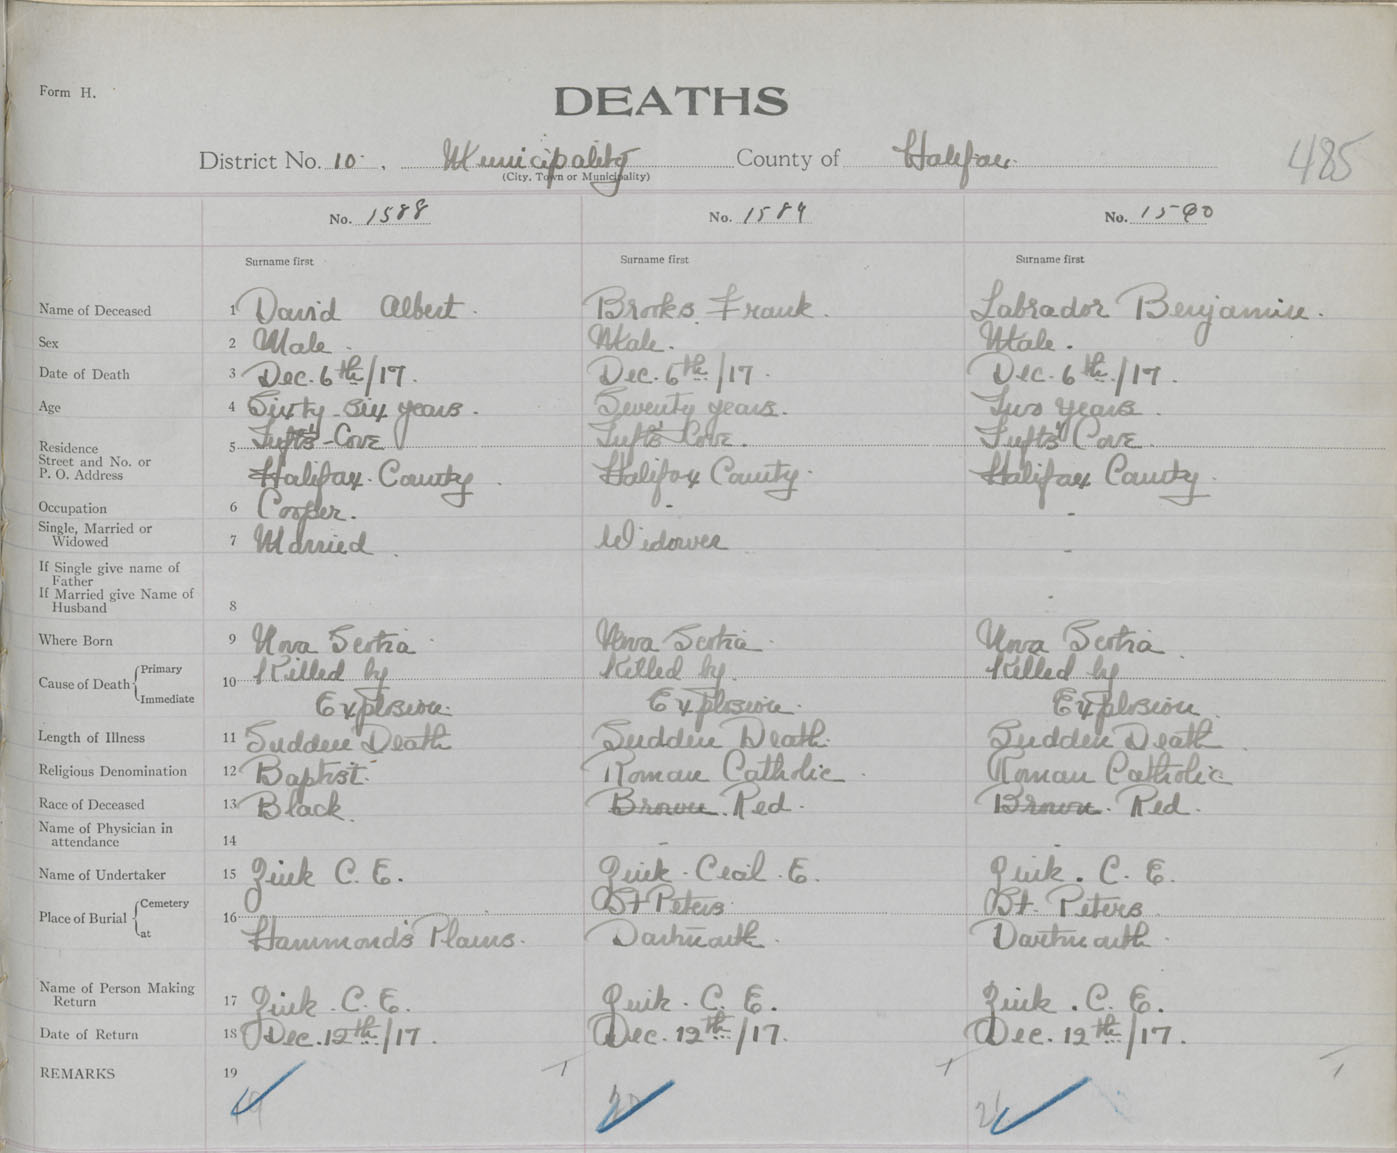 Form H.
DEATHS
District No. 10, Municipality County of Halifax
(City, Town or Municipality)
485
No. 1588 No. 1589 No. 1590
Surname first Surname first Surname first
Name of Deceased 1 David Albert. Brooks Frank. Labrador Benjamin.
Sex 2 Male. Male. Male.
Date of Death 3 Dec. 6th/17. Dec. 6th/17. Dec. 6th/17.
Age 4 Sixty-six years. Seventy years. Two years.
Residence 5 Tufts-Cove Tufts Cove. Tufts' Cove.
Street and No. or
P. O. Address Halifax County. Halifax County. Halifax County.
Occupation 6 Cooper. - -
Single, Married or
Widowed 7 Married. Widower -
If Single give name of
Father
If Married give Name of
Husband 8 -
Where Born 9 Nova Scotia Nova Scotia. Nova Scotia.
Cause of Death Primary 10 Killed by Killed by. Killed by
Immediate Explosion. Explosion. Explosion.
Length of Illness 11 Sudden Death Sudden Death. Sudden Death.
Religious Denomination 12 Baptist. Roman Catholic. Roman Catholic
Race of Deceased 13 Black. Brown. Red. Brown. Red.
Name of Physician in
attendance 14 - -
Name of Undertaker 15 Zink C. E. Zink. Cecil. E. Zink. C. E.
Place of Burial Cemetery 16 St Peters St. Peters.
at Hammonds Plains. Dartmouth. Dartmouth.
Name of Person Making
Return 17 Zink. C. E. Zink. C. E. Zink. C. E.
Date of Return 18 Dec. 12th/17. Dec. 12th/17. Dec. 12th/17.
REMARKS 19
19 20 21